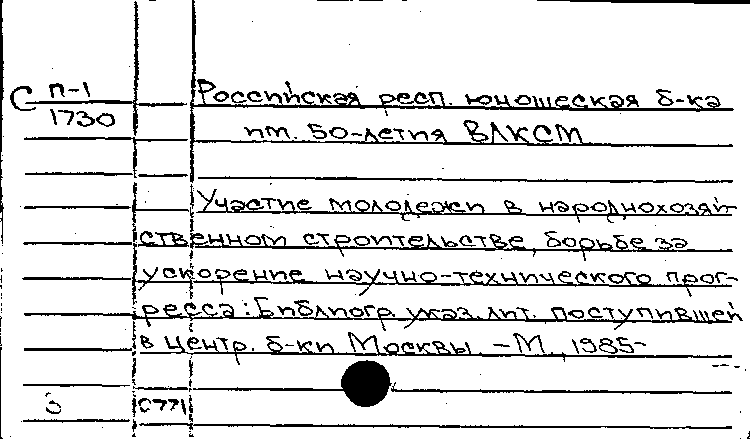 С П-1
1730
Российская респ. юношеская б-ка
им. 50-летия ВЛКСМ
Участие молодежи в народнохозяй-
ственном строительстве, борьбе за
ускорение научно-технического прог-
ресса: Библиогр. указ. лит. поступившей
в центр. б-ки Москвы. - М., 1985-
С771